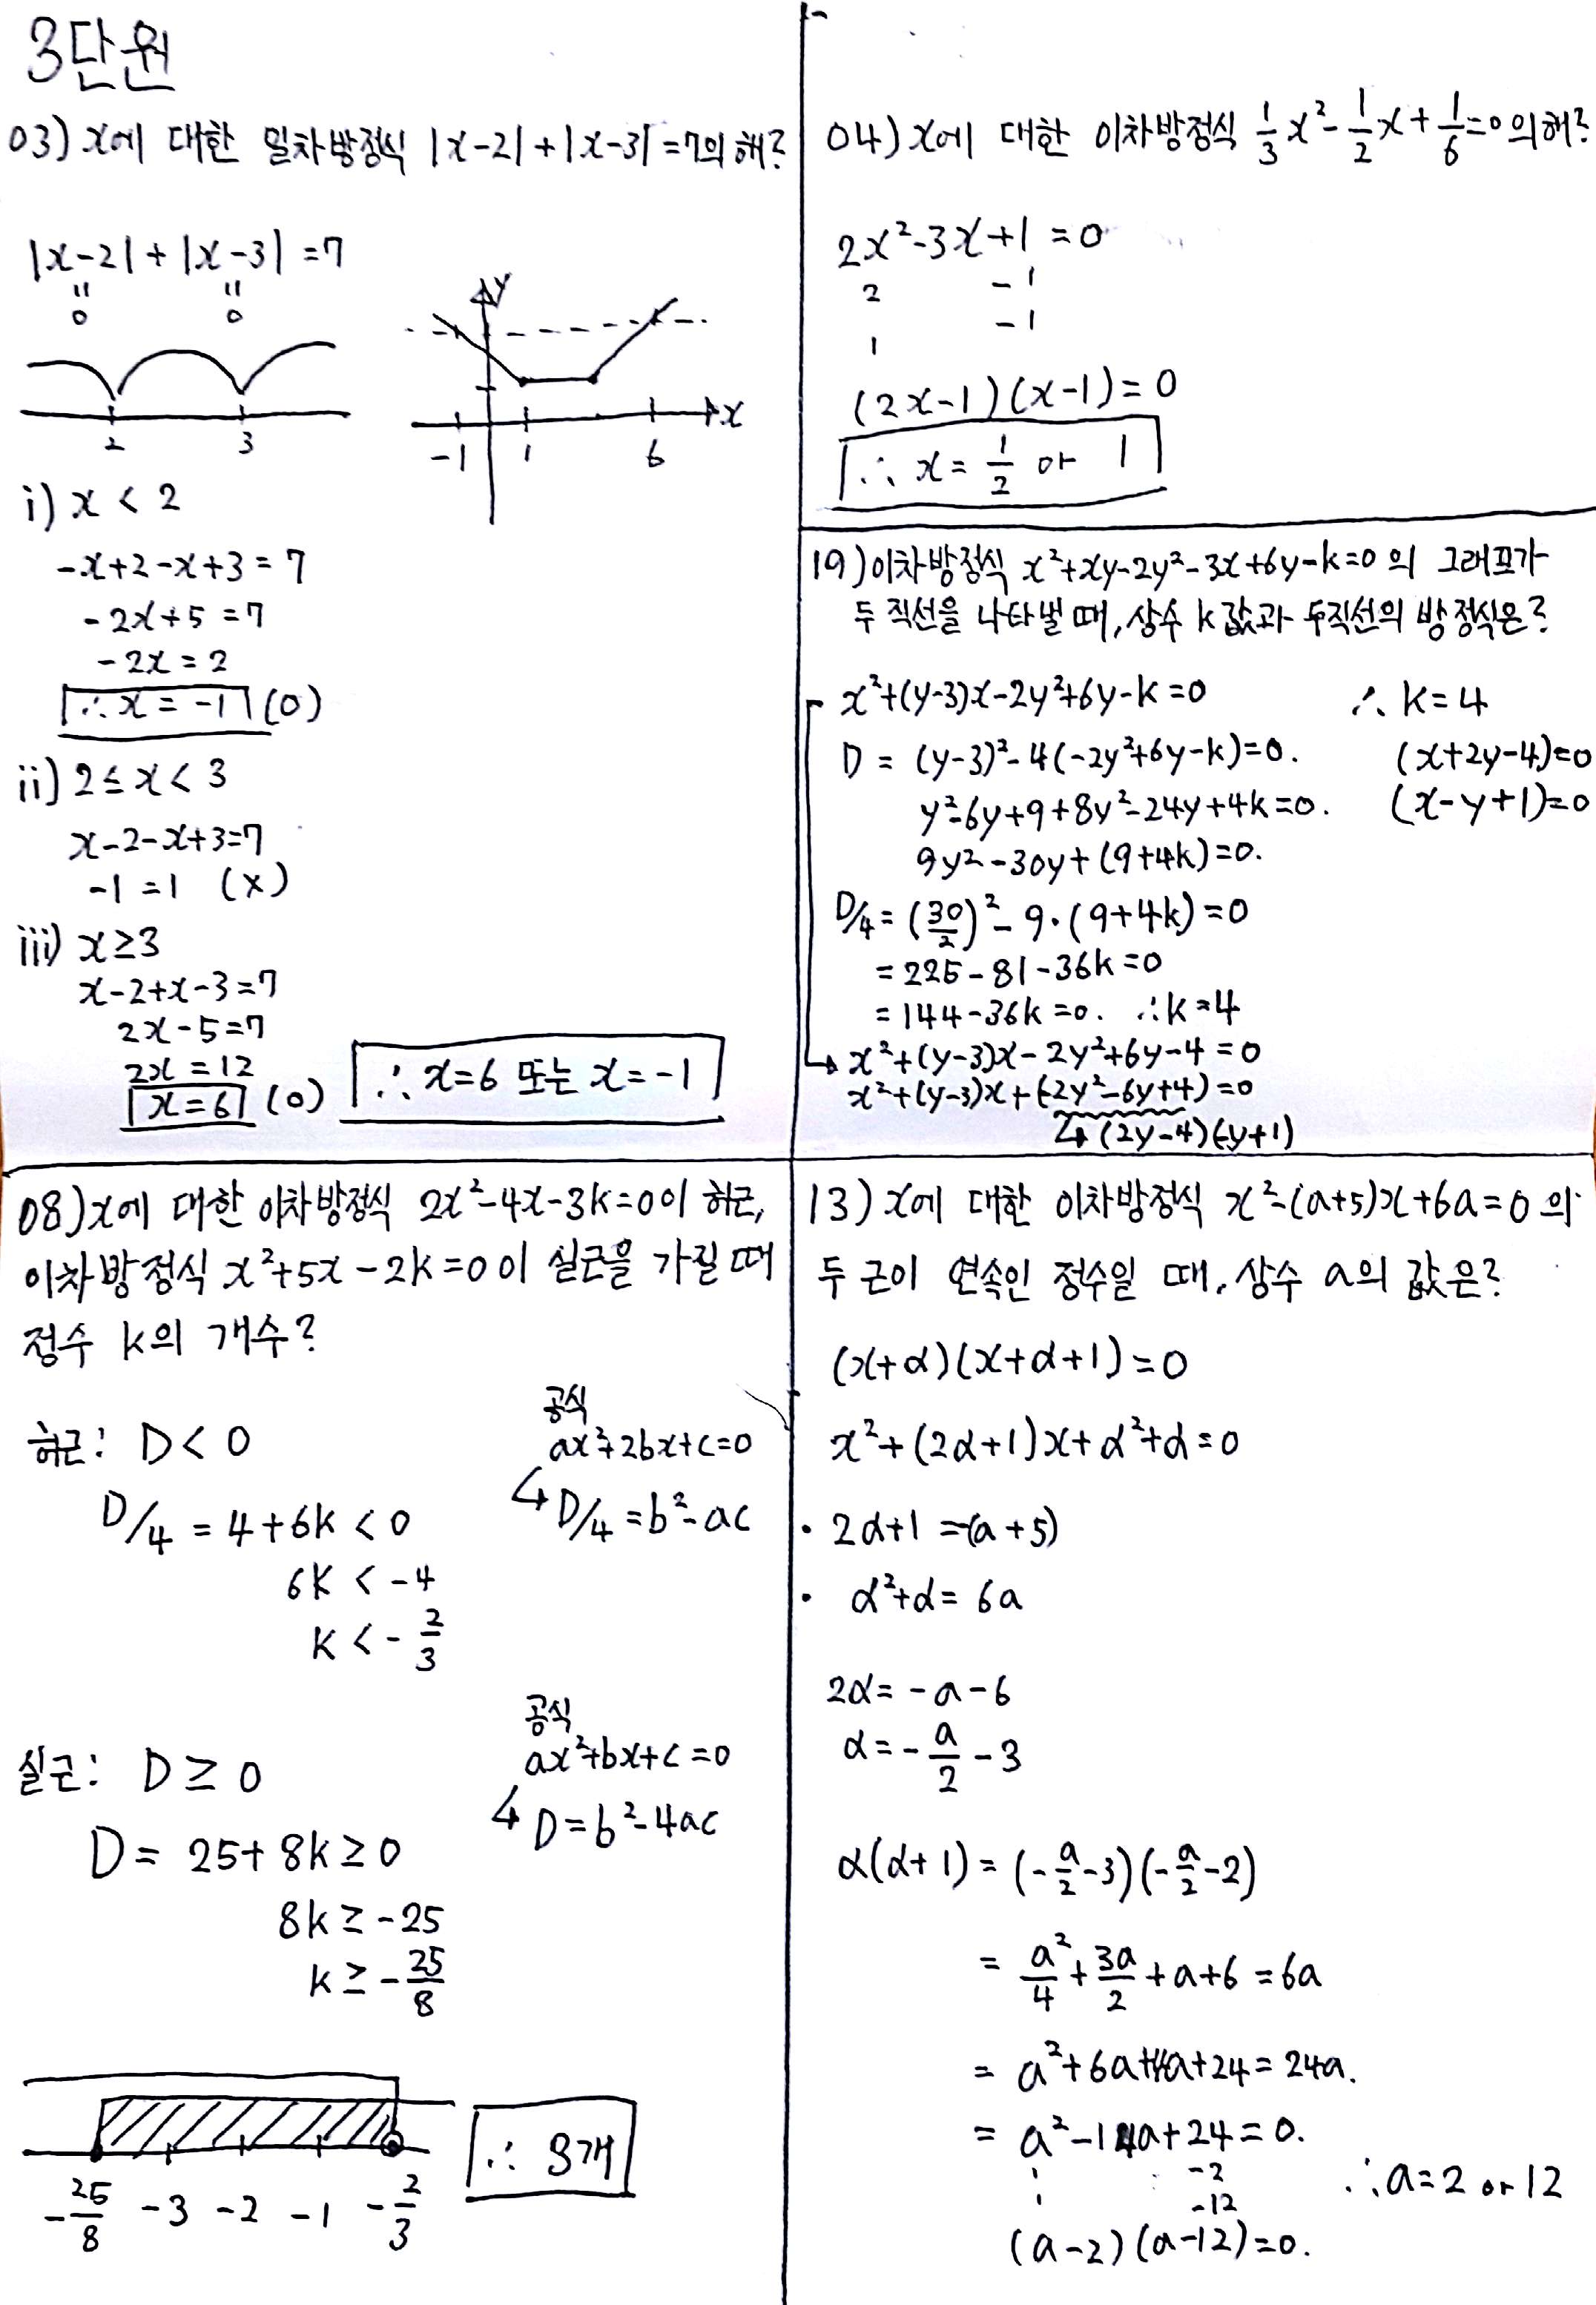 3단원
03) x에 대한 일차방정식 |x-2|+|x-3|=7의 해?
|x-2|+|x-3|=7
" "
0 0
2 3
y
x
-1 1 6
i) x < 2
-x+2-x+3=7
-2x+5=7
-2x=2
∴x=-1 (O)
ii) 2≤x<3
x-2-x+3=7
-1=1 (×)
iii) x≥3
x-2+x-3=7
2x-5=7
2x=12
x=6 (O)
∴ x=6 또는 x=-1
04) x에 대한 이차방정식 1/3x²-1/2x+1/6=0의 해?
2x²-3x+1=0
2 -1
1 -1
(2x-1)(x-1)=0
∴ x=1/2 or 1
19) 이차방정식 x²+xy-2y²-3x+6y-k=0의 그래프가
두 직선을 나타낼 때, 상수 k값과 두직선의 방정식은?
x²+(y-3)x-2y²+6y-k=0
D = (y-3)²-4(-2y²+6y-k)=0.
y²-6y+9+8y²-24y+4k=0.
9y²-30y+(9+4k)=0.
D/4=(30/2)²-9·(9+4k)=0
=225-81-36k=0
=144-36k=0. ∴k=4
→ x²+(y-3)x-2y²+6y-4=0
x²+(y-3)x+(-2y²-6y+4)=0
↳(2y-4)(-y+1)
∴ k=4
(x+2y-4)=0
(x-y+1)=0
08) x에 대한 이차방정식 2x²-4x-3k=0이 허근,
이차방정식 x²+5x-2k=0이 실근을 가질 때
정수 k의 개수?
허근: D<0
D/4=4+6k<0
6k<-4
k<-2/3
공식
ax²+2bx+c=0
↳D/4=b²-ac
실근: D≥0
D=25+8k≥0
8k≥-25
k≥-25/8
공식
ax²+bx+c=0
↳D=b²-4ac
-25/8 -3 -2 -1 -2/3
∴ 3개
13) x에 대한 이차방정식 x²-(a+5)x+6a=0의
두 근이 연속인 정수일 때, 상수 a의 값은?
(x+α)(x+α+1)=0
x²+(2α+1)x+α²+α=0
· 2α+1=-(a+5)
· α²+α=6a
2α=-a-6
α=-a/2-3
α(α+1)=(-a/2-3)(-a/2-2)
=a²/4+3a/2+a+6=6a
=a²+6a+4a+24=24a.
=a²-14a+24=0.
1 -2
1 -12
(a-2)(a-12)=0.
∴a=2 or 12